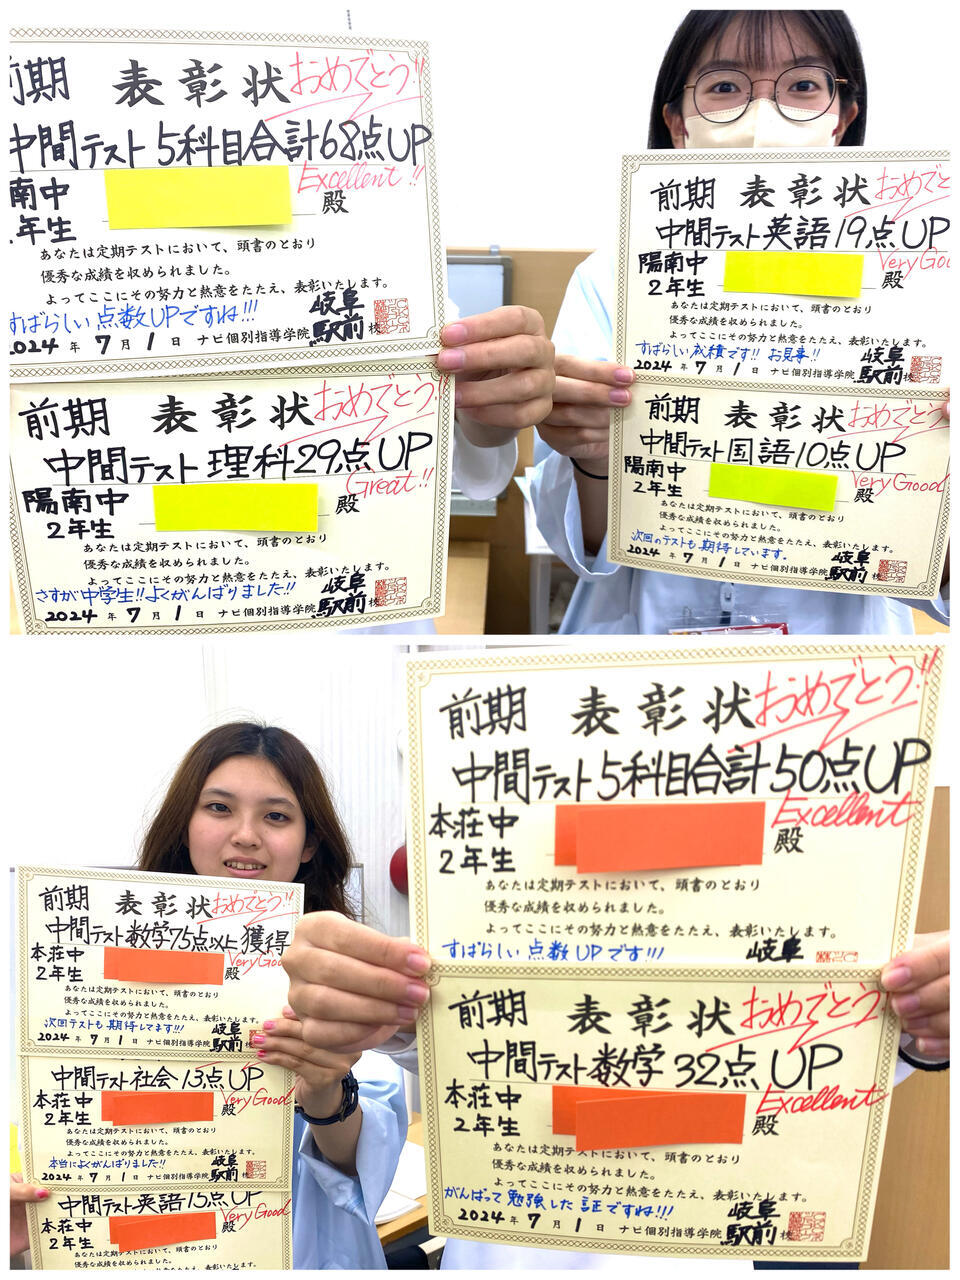 前期 表彰状 おめでとう!!
中間テスト 5科目合計68点UP
Excellent!!
南中
年生
殿
あなたは定期テストにおいて、頭書のとおり
優秀な成績を収められました。
よってここにその努力と熱意をたたえ、表彰いたします。
すばらしい点数UPですね!!!
岐阜
駅前校
2024年7月1日 ナビ個別指導学院
前期 表彰状 おめでとう!!
中間テスト 理科29点UP
Great!!
陽南中
2年生
殿
あなたは定期テストにおいて、頭書のとおり
優秀な成績を収められました。
よってここにその努力と熱意をたたえ、表彰いたします。
さすが中学生!!よくがんばりました!!
岐阜
駅前校
2024年7月1日 ナビ個別指導学院
前期 表彰状 おめでと
中間テスト英語19点UP
Very Goo
陽南中
2年生
殿
あなたは定期テストにおいて、頭書のとおり
優秀な成績を収められました。
よってここにその努力と熱意をたたえ、表彰いたします。
すばらしい成績です!! お見事!!
岐阜
駅前校
2024年7月1日 ナビ個別指導学院
前期 表彰状 おめでとう
中間テスト国語10点UP
Very Good
陽南中
2年生
殿
あなたは定期テストにおいて、頭書のとおり
優秀な成績を収められました。
よってここにその努力と熱意をたたえ、表彰いたします。
次回のテストも期待しています。
岐阜
駅前校
2024年7月1日 ナビ個別指導学院
前期 表彰状 おめでとう!!
中間テスト数学75点以上獲得
Very Good
本荘中
2年生
殿
あなたは定期テストにおいて、頭書のとおり
優秀な成績を収められました。
よってここにその努力と熱意をたたえ、表彰いたします。
次回テストも期待してます!!!
岐阜
駅前
2024年7月1日 ナビ個別指導学院
中間テスト社会13点UP
Very Good
本荘中
2年生
殿
あなたは定期テストにおいて、頭書のとおり
優秀な成績を収められました。
よってここにその努力と熱意をたたえ、表彰いたします。
本当によくがんばりました!!
岐阜
駅前
2024年7月1日 ナビ個別指導学院
中間テスト英語15点UP
Very Good
本荘中
2年生
殿
あなたは定期テストにおいて、頭書のとおり
優秀な成績を収められました。
前期 表彰状 おめでとう!!
中間テスト5科目合計50点UP
Excellent
本荘中
2年生
殿
あなたは定期テストにおいて、頭書のとおり
優秀な成績を収められました。
よってここにその努力と熱意をたたえ、表彰いたします。
すばらしい点数UPです!!!
岐阜
前期 表彰状 おめでとう!
中間テスト数学32点UP
Excellent
本荘中
2年生
殿
あなたは定期テストにおいて、頭書のとおり
優秀な成績を収められました。
よってここにその努力と熱意をたたえ、表彰いたします。
がんばって勉強した証ですね!!!
岐阜
駅前校
2024年7月1日 ナビ個別指導学院